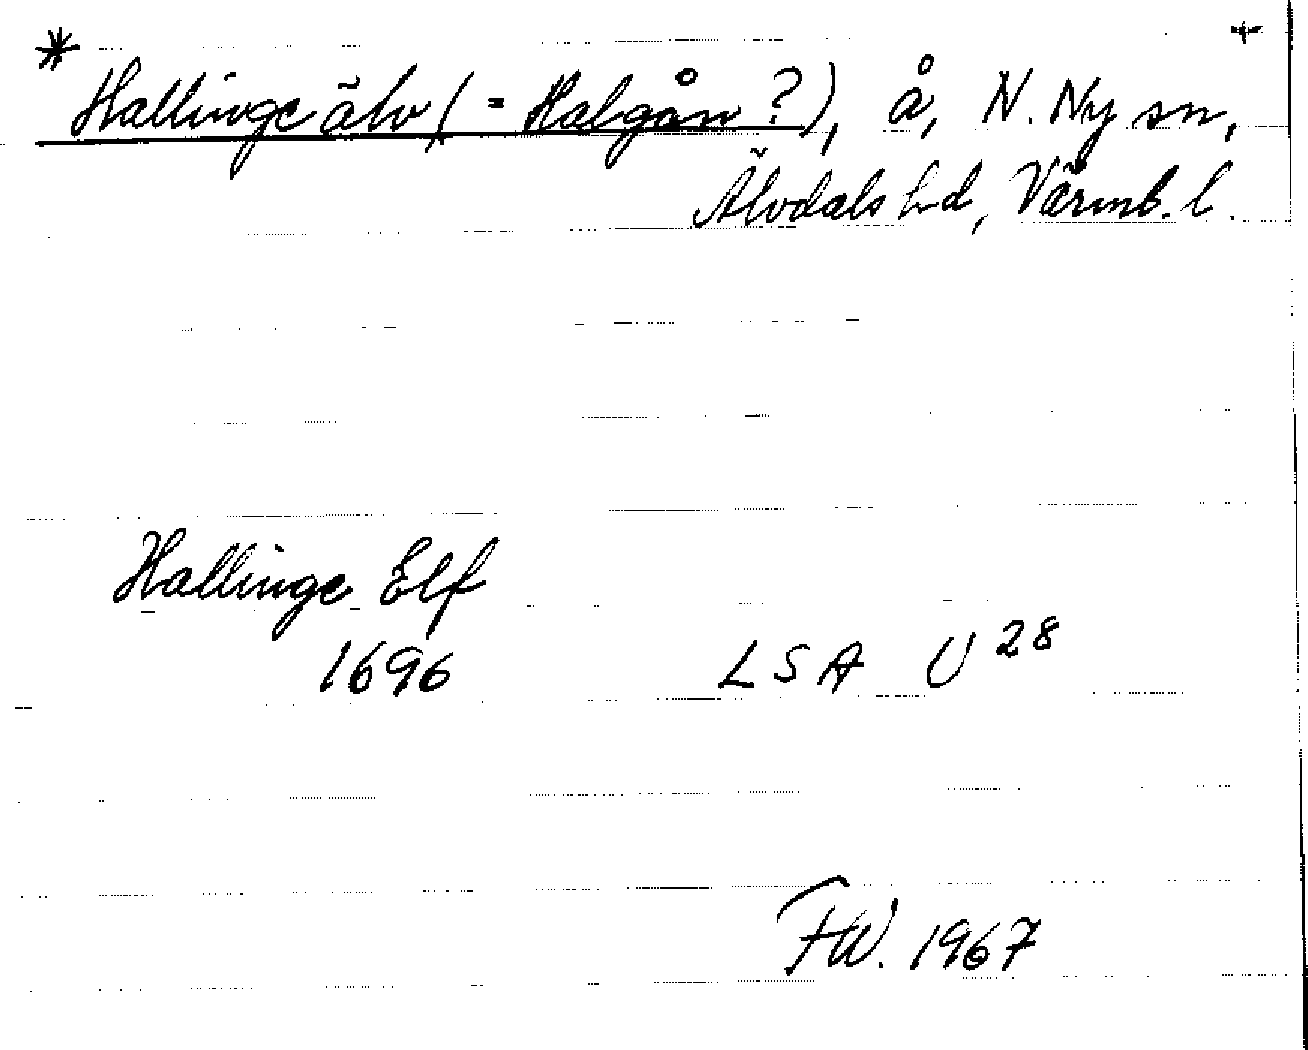 * +
Hallinge älv (= Halgån?), å, N. Ny sn,
Älvdals hd, Värml. l.
Hallinge Elf
1696 LSA U 28
FW. 1967